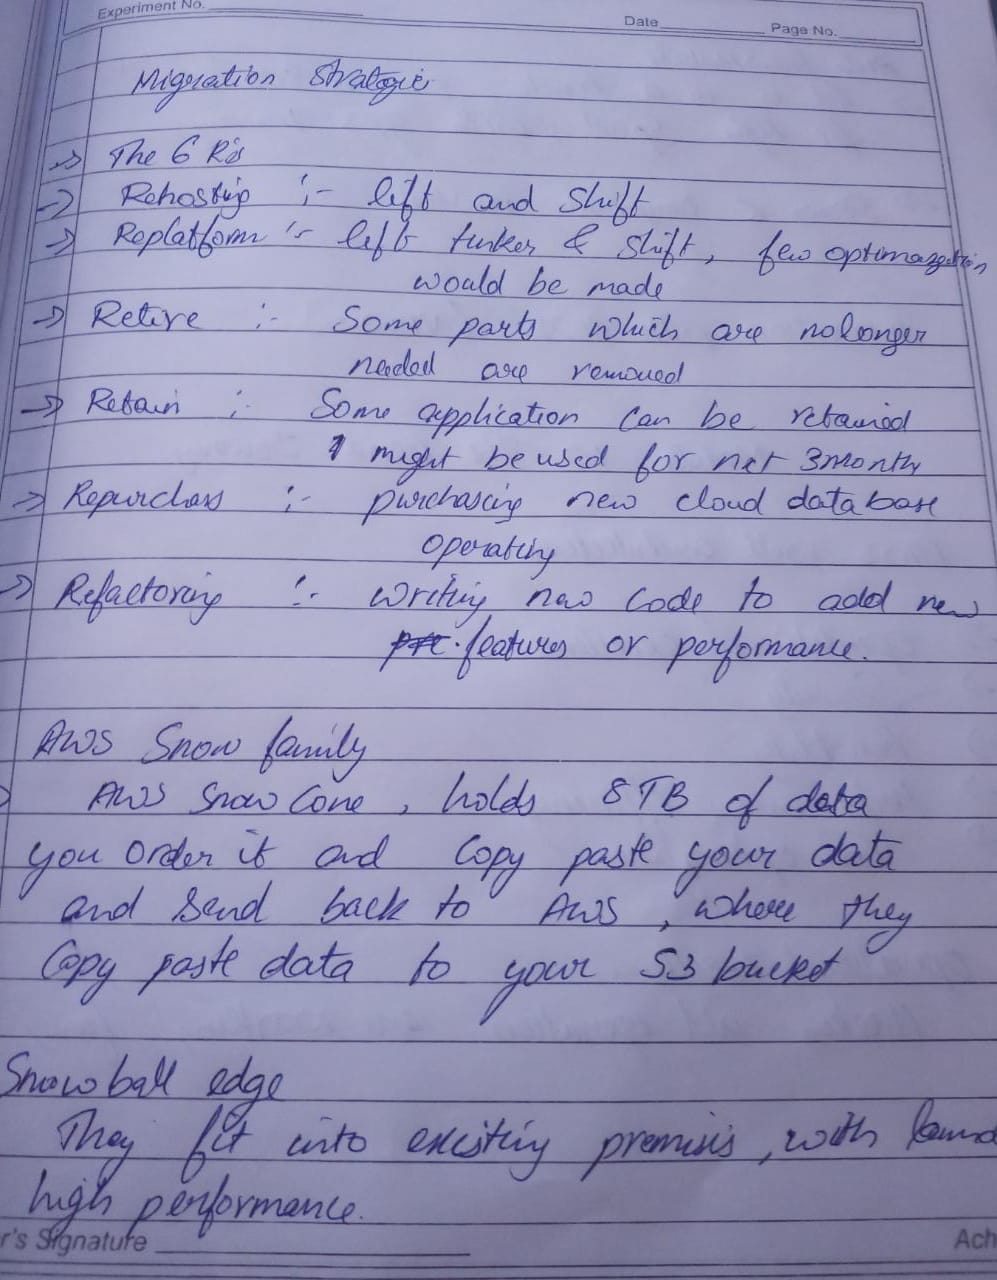 Experiment No.
Date Page No.
Migration Strategic
→ The 6 R's
→ Rehosting :- left and Shift
→ Replatform :- left tinker & shift, few optimazation
would be made
→ Retire :- Some parts which are no longer
needed are removed
→ Retain :- Some application can be retained
might be used for net 3month
→ Repurchass :- purchasing new cloud database
operating
→ Refactoring :- writing new code to add new
features or performance.
AWS Snow family
AWS Snow Cone, holds 8TB of data
you order it and Copy paste your data
and send back to AWS, where they
Copy paste data to your S3 bucket
Snowball edge
They fit into existing premisis, with
high performance.
r's Signature Ach